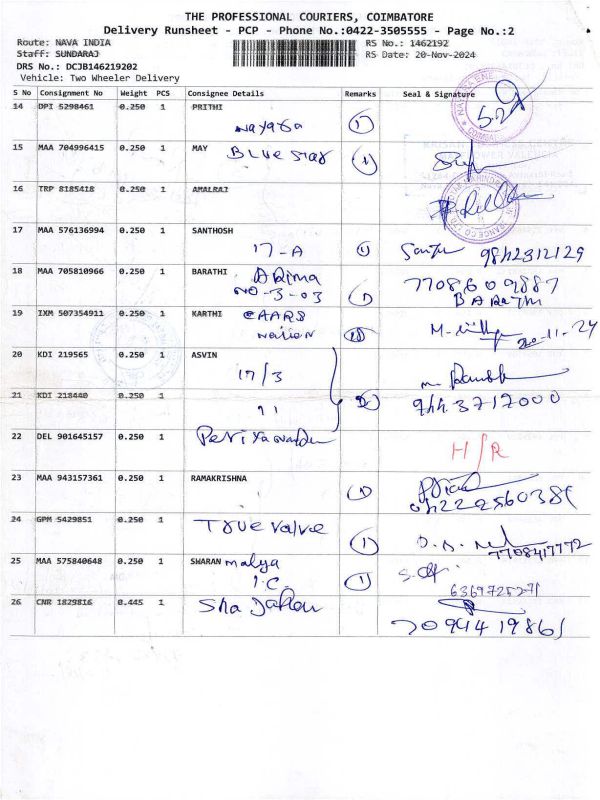 THE PROFESSIONAL COURIERS, COIMBATORE
Delivery Runsheet - PCP - Phone No.:0422-3505555 - Page No.:2
Route: NAVA INDIA RS No.: 1462192
Staff: SUNDARAJ RS Date: 20-Nov-2024
DRS No.: DCJB146219202
Vehicle: Two Wheeler Delivery
S No Consignment No Weight PCS Consignee Details Remarks Seal & Signature
14 DPI 5298461 0.250 1 PRITHI
1
15 MAA 704996415 0.250 1 MAY Blue Star 1
16 TRP 8185418 0.250 1 AMALRAJ
17 MAA 576136994 0.250 1 SANTHOSH
17-A 1 9842312129
18 MAA 705810966 0.250 1 BARATHI
NO-3-03 1 7708609887
BARATHI
19 IXM 507354911 0.250 1 KARTHI CAARS
20-11-24
20 KDI 219565 0.250 1 ASVIN
17/3
21 KDI 218440 0.250 1
11 2 9443717000
22 DEL 901645157 0.250 1
H/R
23 MAA 943157361 0.250 1 RAMAKRISHNA
1
24 GPM 5429851 0.250 1 True Valve
1 7708417772
25 MAA 575840648 0.250 1 SWARAN malya
I.C. 1
26 CNR 1829816 0.445 1
7094419861